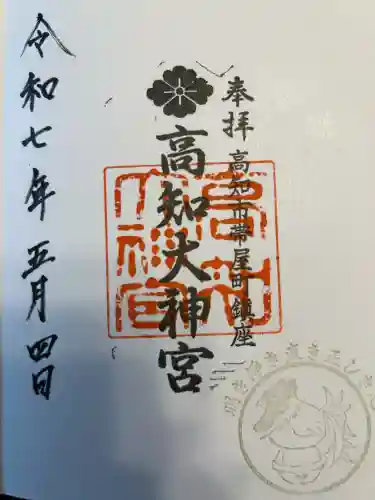 奉拝
高知市帯屋町鎮座
高知大神宮
令和七年五月四日